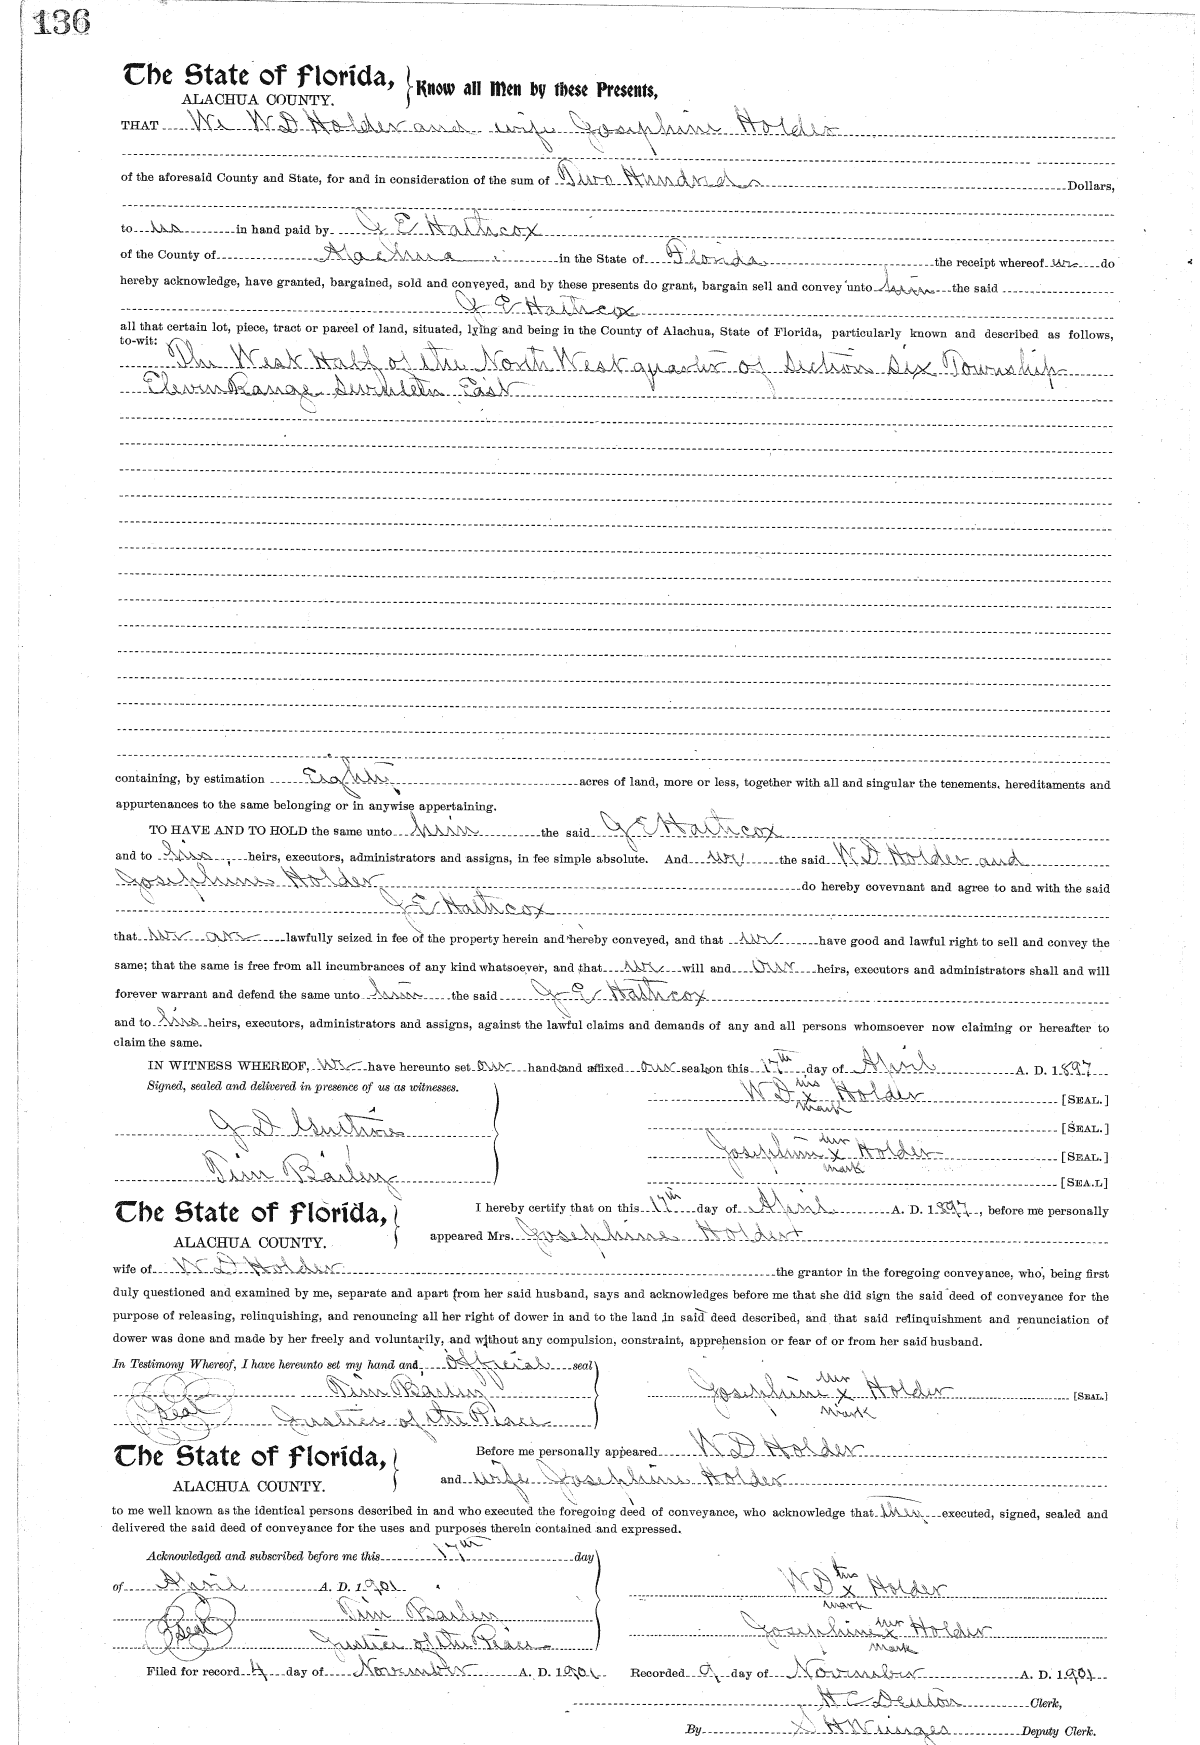 136
The State of Florida,
ALACHUA COUNTY.
Know all Men by these Presents,
THAT We W D Holder and wife Josephine Holder
of the aforesaid County and State, for and in consideration of the sum of Two Hundred Dollars,
to us in hand paid by G E Haithcox
of the County of Alachua in the State of Florida the receipt whereof we do
hereby acknowledge, have granted, bargained, sold and conveyed, and by these presents do grant, bargain sell and convey unto him the said
G E Haithcox
all that certain lot, piece, tract or parcel of land, situated, lying and being in the County of Alachua, State of Florida, particularly known and described as follows,
to-wit: The West Half of the North West quarter of Section Six Township
Eleven Range Seventeen East
containing, by estimation Eighty acres of land, more or less, together with all and singular the tenements, hereditaments and
appurtenances to the same belonging or in anywise appertaining.
TO HAVE AND TO HOLD the same unto him the said G E Haithcox
and to his heirs, executors, administrators and assigns, in fee simple absolute. And we the said W D Holder and
Josephine Holder do hereby covevnant and agree to and with the said
G E Haithcox
that we are lawfully seized in fee of the property herein and hereby conveyed, and that we have good and lawful right to sell and convey the
same; that the same is free from all incumbrances of any kind whatsoever, and that we will and our heirs, executors and administrators shall and will
forever warrant and defend the same unto him the said G E Haithcox
and to his heirs, executors, administrators and assigns, against the lawful claims and demands of any and all persons whomsoever now claiming or hereafter to
claim the same.
IN WITNESS WHEREOF, we have hereunto set our hands and affixed our seals on this 17th day of April A. D. 1897
Signed, sealed and delivered in presence of us as witnesses.
W D his x mark Holder [SEAL.]
G D Guthrie [SEAL.]
Josephine her x mark Holder [SEAL.]
Tim Barley [SEA.L]
The State of Florida,
ALACHUA COUNTY.
I hereby certify that on this 17th day of April A. D. 1897, before me personally
appeared Mrs. Josephine Holder
wife of W D Holder the grantor in the foregoing conveyance, who, being first
duly questioned and examined by me, separate and apart from her said husband, says and acknowledges before me that she did sign the said deed of conveyance for the
purpose of releasing, relinquishing, and renouncing all her right of dower in and to the land in said deed described, and that said relinquishment and renunciation of
dower was done and made by her freely and voluntarily, and without any compulsion, constraint, apprehension or fear of or from her said husband.
In Testimony Whereof, I have hereunto set my hand and official seal
Tim Barley
Josephine her x mark Holder [SEAL.]
Seal Justice of the Peace
The State of Florida,
ALACHUA COUNTY.
Before me personally appeared W D Holder
and wife Josephine Holder
to me well known as the identical persons described in and who executed the foregoing deed of conveyance, who acknowledge that they executed, signed, sealed and
delivered the said deed of conveyance for the uses and purposes therein contained and expressed.
Acknowledged and subscribed before me this 17th day
of April A. D. 1901
W D his x mark Holder
Tim Barley
Josephine her x mark Holder
Seal Justice of the Peace
Filed for record 4 day of November A. D. 1901 Recorded 9 day of November A. D. 1901
H C Denton Clerk,
By S H Wienges Deputy Clerk.